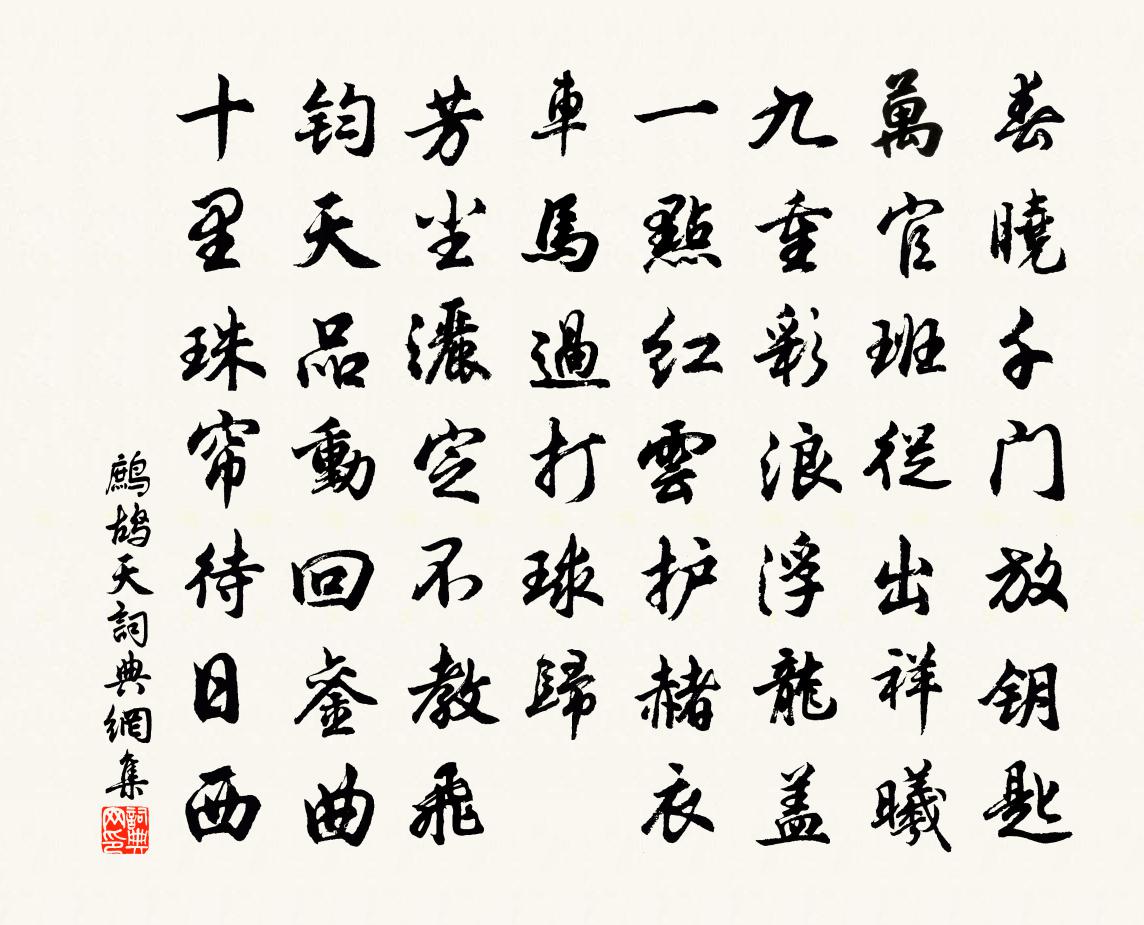 春曉千门放钥匙
萬官班從出祥曦
九重彩浪浮龍盖
一點红雲护赭衣
車馬過打球歸
芳尘灑定不教飛
钧天品動回銮曲
十里珠帘待日西
鹧鸪天詞典網集
詞典网印